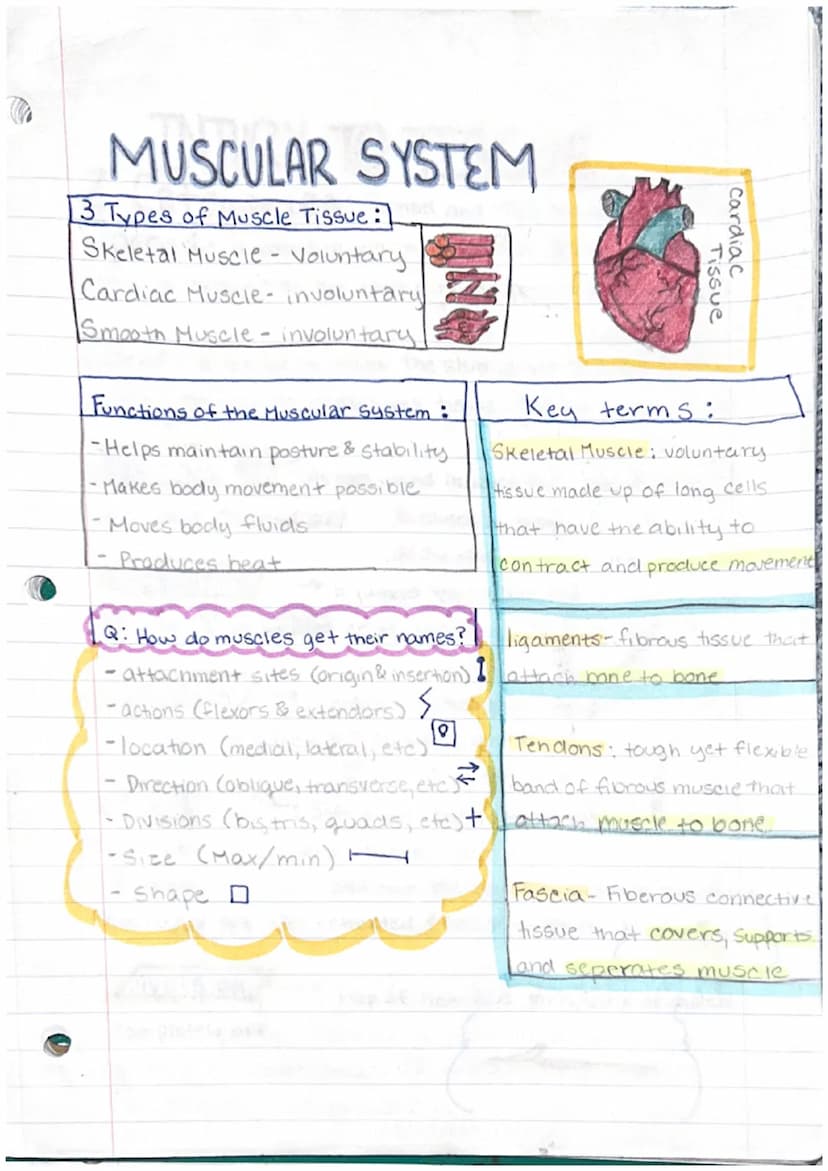 MUSCULAR SYSTEM
3 Types of Muscle Tissue:
Skeletal Muscle - Voluntary
Cardiac Muscle- involuntary
Smooth Muscle - involuntary
Cardiac
Tissue
Functions of the Muscular System:
- Helps maintain posture & stability
- Makes body movement possible
- Moves body fluids
- Produces heat
Q: How do muscles get their names?
- attachment sites (origin & insertion)
- actions (flexors & extendors)
- location (medial, lateral, etc)
- Direction (oblique, transverse, etc)
- Divisions (bis, tris, quads, etc) +
- Size (Max/min)
- Shape
Key terms:
Skeletal Muscle: voluntary
tissue made up of long cells
that have the ability to
contract and produce movement
ligaments- fibrous tissue that
attach bone to bone
Tendons: tough yet flexible
band of fibrous muscle that
attach muscle to bone
Fascia- Fiberous connective
tissue that covers, supports
and seperates muscle